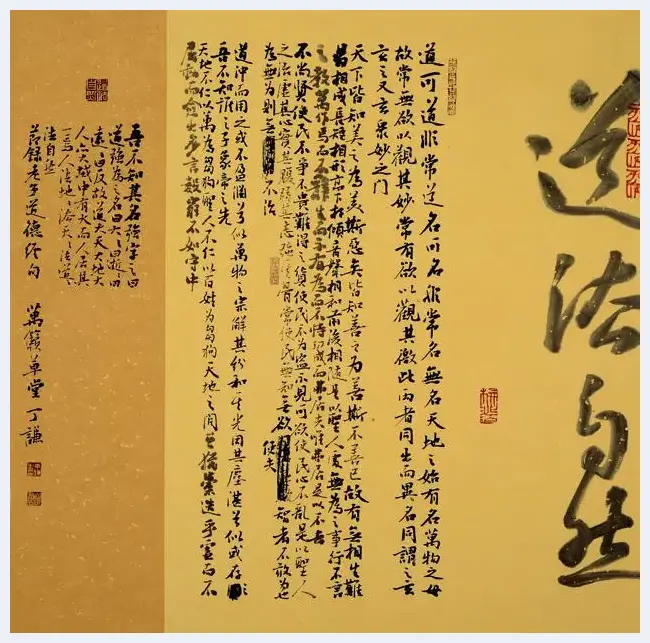 道法自然
道可道非常道名可名非常名無名天地之始有名萬物之母
故常無欲以觀其妙常有欲以觀其徼此兩者同出而異名同謂之玄
玄之又玄眾妙之門
天下皆知美之為美斯惡矣皆知善之為善斯不善已故有無相生難
易相成長短相形高下相傾音聲相和前後相隨是以聖人處無為之事行不言
之教萬物作焉而不辭生而不有為而不恃功成而弗居夫唯弗居是以不去
不尚賢使民不爭不貴難得之貨使民不為盜不見可欲使民心不亂是以聖人
之治虛其心實其腹弱其志強其骨常使民無知無欲使夫智者不敢為也
為無為則無不治
道沖而用之或不盈淵兮似萬物之宗解其份和其光同其塵湛兮似或存
吾不知誰之子象帝之先
天地不仁以萬為芻狗聖人不仁以百姓為芻狗天地之間其猶橐籥乎虛而不
屈動而愈出多言數窮不如守中
吾不知其名強字之曰
道強為之名曰大大曰逝逝曰
遠遠曰反故道大天大地大
人亦大域中有大而人居其
一焉人法地地法天天法道道
法自然
節錄老子道德經句
萬籟草堂丁謙